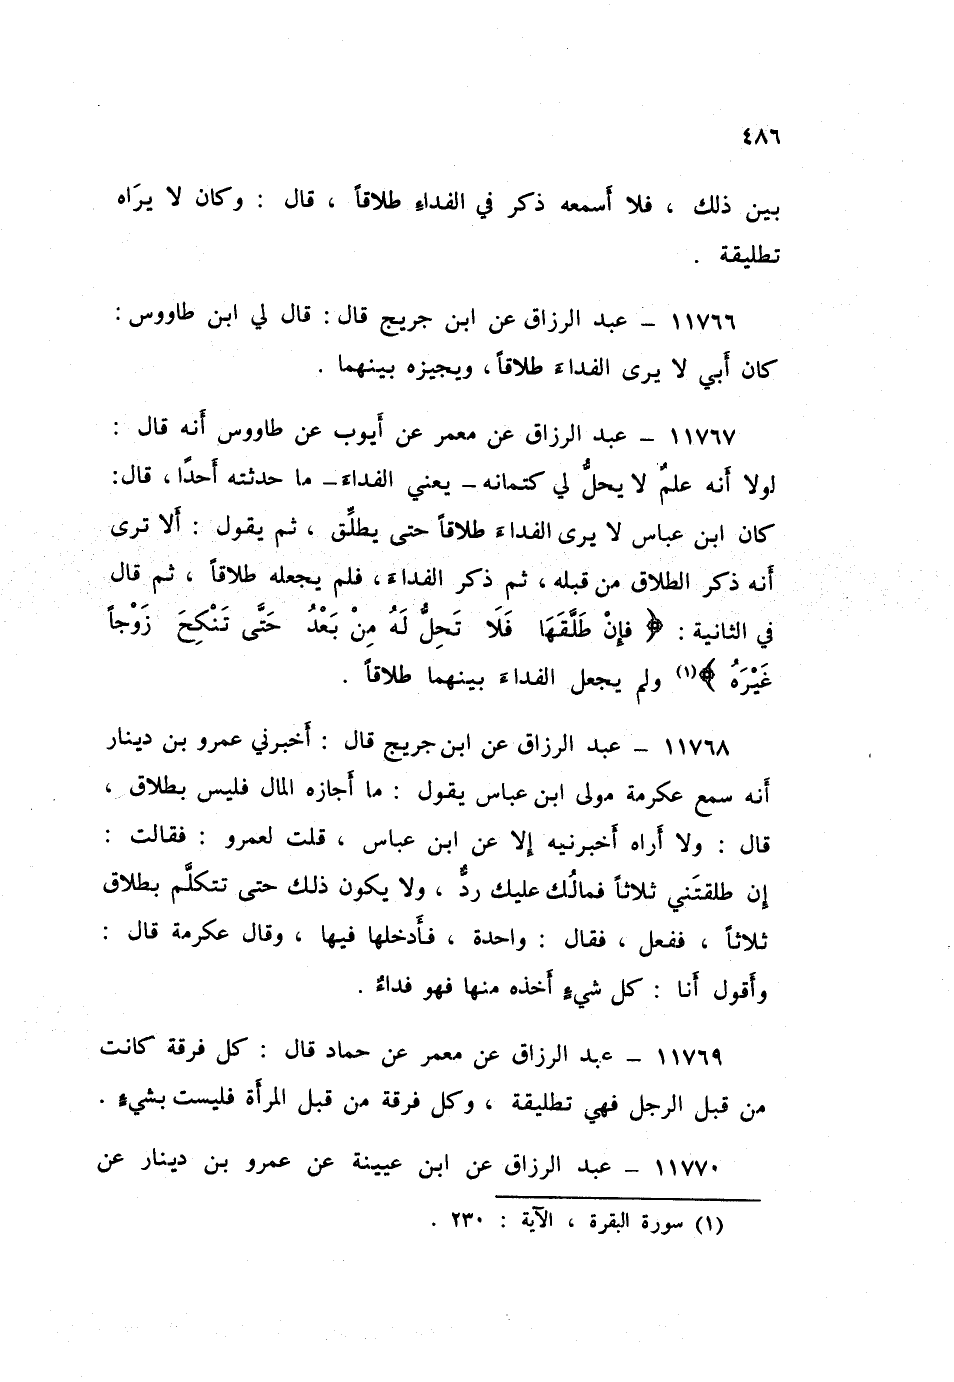 ٤٨٦
بين ذلك ، فلا أسمعه ذكر في الفداءِ طلاقاً ، قال : وكان لا يرَاه
تطليقة .
١١٧٦٦ – عبد الرزاق عن ابن جريج قال : قال لي ابن طاووس :
كان أبي لا يرى الفداءَ طلاقاً ، ويجيزه بينهما .
١١٧٦٧ – عبد الرزاق عن معمر عن أيوب عن طاووس أنه قال :
لولا أنه علمٌ لا يحلُّ لي كتمانه – يعني الفداءَ – ما حدثته أحدًا ، قال :
كان ابن عباس لا يرى الفداءَ طلاقاً حتى يطلِّق ، ثم يقول : ألا ترى
أنه ذكر الطلاق من قبله ، ثم ذكر الفداءَ ، فلم يجعله طلاقاً ، ثم قال
في الثانية : ﴿ فإِنْ طَلَّقَهَا فَلَا تَحِلُّ لَهُ مِنْ بَعْدُ حَتَّى تَنْكِحَ زَوْجاً
غَيْرَهُ ﴾(١) ولم يجعل الفداءَ بينهما طلاقاً .
١١٧٦٨ – عبد الرزاق عن ابن جريج قال : أخبرني عمرو بن دينار
أنه سمع عكرمة مولى ابن عباس يقول : ما أجازه المال فليس بطلاق ،
قال : ولا أراه أخبرنيه إلا عن ابن عباس ، قلت لعمرو : فقالت :
إن طلقتَني ثلاثاً فمالُك عليك ردٌّ ، ولا يكون ذلك حتى تتكلَّم بطلاق
ثلاثاً ، ففعل ، فقال : واحدة ، فأدخلها فيها ، وقال عكرمة قال :
وأقول أنا : كل شيءٍ أخذه منها فهو فداءٌ .
١١٧٦٩ – عبد الرزاق عن معمر عن حماد قال : كل فرقة كانت
من قبل الرجل فهي تطليقة ، وكل فرقة من قبل المرأة فليست بشيءٍ .
١١٧٧٠ – عبد الرزاق عن ابن عيينة عن عمرو بن دينار عن
(١) سورة البقرة ، الآية : ٢٣٠ .